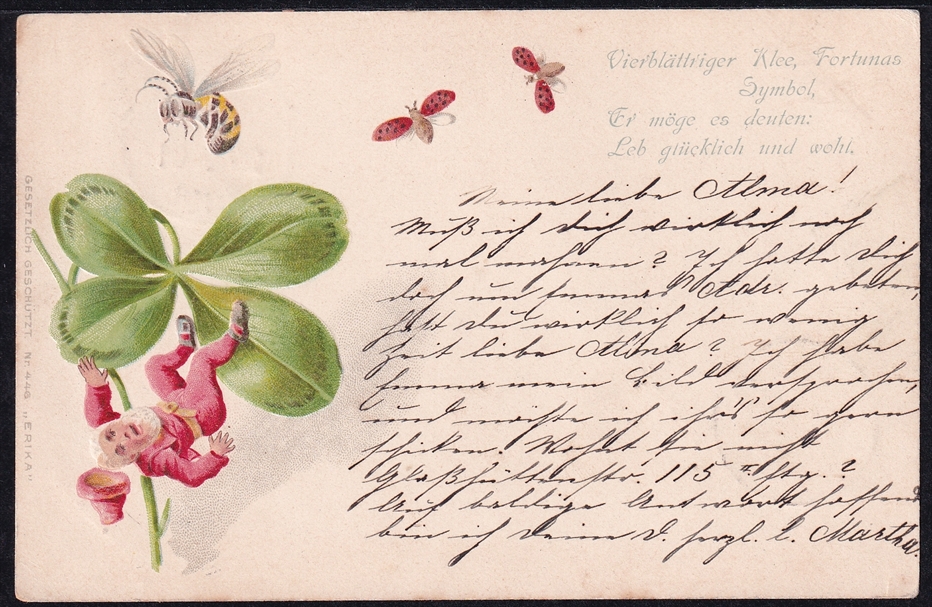 Vierblättriger Klee, Fortunas
Symbol,
Er möge es deuten:
Leb glücklich und wohl.
Meine liebe Alma!
Muß ich dich wirklich noch
mal mahnen? Ich hatte Dich
doch um Emmas Adr. gebeten,
hast Du wirklich so wenig
Zeit liebe Alma? Ich habe
Emma mein Bild versprochen,
und möchte ich ihr's so gern
schicken. Wohnt sie nicht
Glashüttenstr. 115 II Etg.?
Auf baldige Antwort hoffend
bin ich Deine D. herzl. l. Martha.
GESETZLICH GESCHÜTZT. Nr. 446 „ERIKA"